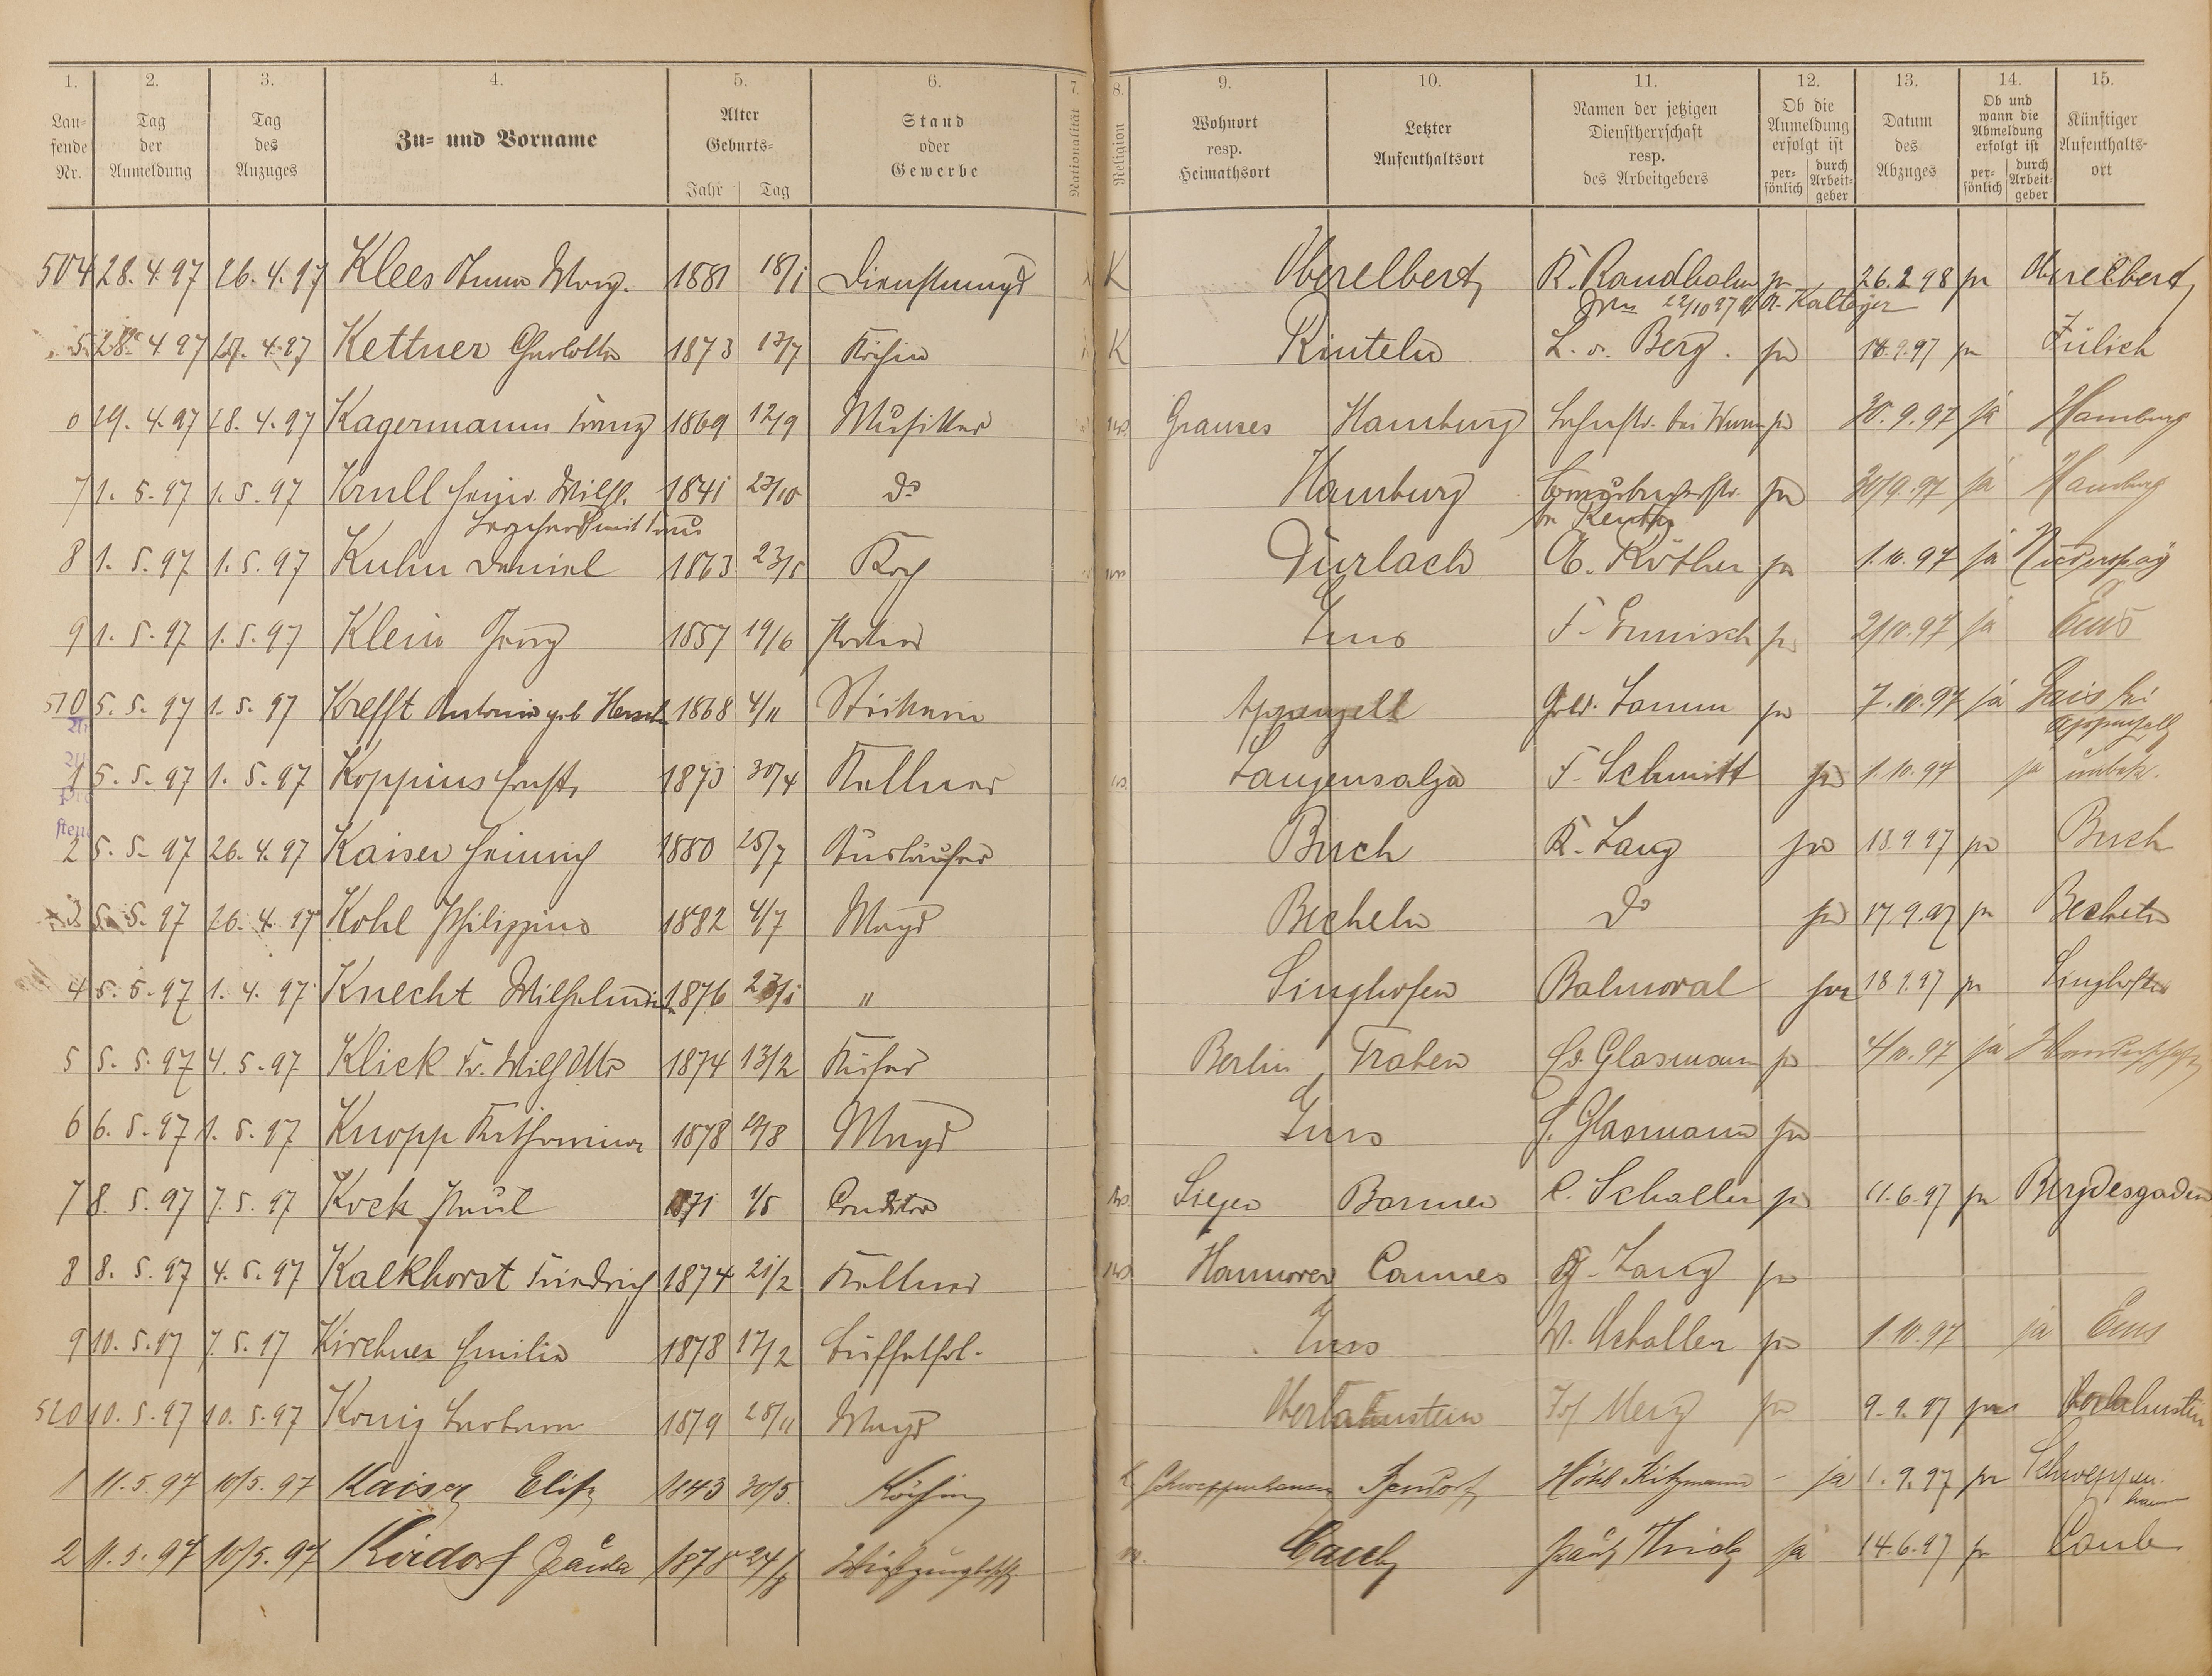 1. 2. 3. 4. 5. 6. 7. 8. 9. 10. 11. 12. 13. 14. 15.
Lau-
fende
Nr.
Tag
der
Anmeldung
Tag
des
Anzuges
Zu- und Vorname
Alter
Geburts-
Jahr Tag
Stand
oder
Gewerbe
Nationalität
Religion
Wohnort
resp.
Heimathsort
Letzter
Aufenthaltsort
Namen der jetzigen
Dienstherrschaft
resp.
des Arbeitgebers
Ob die
Anmeldung
erfolgt ist
per-
sönlich
durch
Arbeit-
geber
Datum
des
Abzuges
Ob und
wann die
Abmeldung
erfolgt ist
per-
sönlich
durch
Arbeit-
geber
Künftiger
Aufenthalts-
ort
504 28. 4. 97 26. 4. 97 Klees Anna Marg. 1881 18/1 Dienstmagd K Oberelbert K. Randhahn ja 26.2 98 ja Oberelbert
22/10 97 Kalteyer
5 28. 4. 97 27. 4. 97 Kettner Charlotte 1873 13/7 Köchin K Rinteln L. v. Berg. ja 18.9.97 ja Zülich
29. 4. 97 28. 4. 97 Kagermann Franz 1869 12/9 Musiker Hamburg 30. 9. 97 ja Hamburg
7 1. 5. 97 1. 5. 97 Krull Heinr. Wilh. 1841 23/10 do Hamburg ja 30/9. 97 ja Hamburg
mit Frau
8 1. 5. 97 1. 5. 97 Kuhn Daniel 1863 23/5 Koch Durlach A. Röther ja 1. 10. 97 ja Niederspay
9 1. 5. 97 1. 5. 97 Klein Georg 1857 19/6 Portier Ems F. Ermisch ja 2/10. 97 ja Ems
510 5. 5. 97 1. 5. 97 Krefft Antonie geb 1868 4/11 Stickerin Appenzell Gebr. Lamm ja 7. 10. 97 ja Gais bei
Appenzell
1 5. 5. 97 1. 5. 97 Koppius Ernst 1875 30/4 Kellner Langensalza F. Schmitt ja 1. 10. 97 ja unbek.
2 5. 5. 97 26. 4. 97 Kaiser Heinrich 1880 25/7 Ausläufer Buch K. Lang ja 18. 9 97 ja Buch
3 5. 5. 97 26. 4. 97 Kohl Philippine 1882 4/7 Magd Becheln do ja 17. 9. 97 ja Becheln
4 5. 5. 97 1. 4. 97 Knecht Wilhelmine 1876 Singhofen Balmoral ja 18 9. 97 ja Singhofen
5 5. 5. 97 4. 5. 97 Klick Fr. Wilh Otto 1874 13/2 Küfer Berlin Traben Ed. Glasmann ja 4/10. 97 ja
6 6. 5. 97 1. 5. 97 Knopp Katharina 1878 Magd Ems Glasmann ja
7 8. 5. 97 7. 5. 97 Kock Paul 1871 1/5 Conditor Siegen Barmen C. Schaller ja 11. 6. 97 ja Bergdesgaden
8 8. 5. 97 4. 5. 97 Kalkhorst Friedrich 1874 21/2 Kellner Hannover Cannes Lang ja
9 10. 5. 97 7. 5. 97 Kirchner Emilie 1878 17/2 Büffetfrl. Ems W. Schaller ja 1. 10. 97 ja Ems
520 10. 5. 97 10. 5. 97 König Barbara 1879 28/11 Magd Oberlahnstein Jos Merz ja 9. 9. 97 ja Oberlahnstein
1 11. 5. 97 10/5. 97 Kaiser Elise 1843 30/5 Köchin K Schweppenhausen Hôtel Kitzmann - ja 1. 9. 97 ja Schweppen-
hausen
2 11. 5. 97 10/5. 97 Kirdorf Paula 1878 Caub ja 14. 6. 97 ja Caub